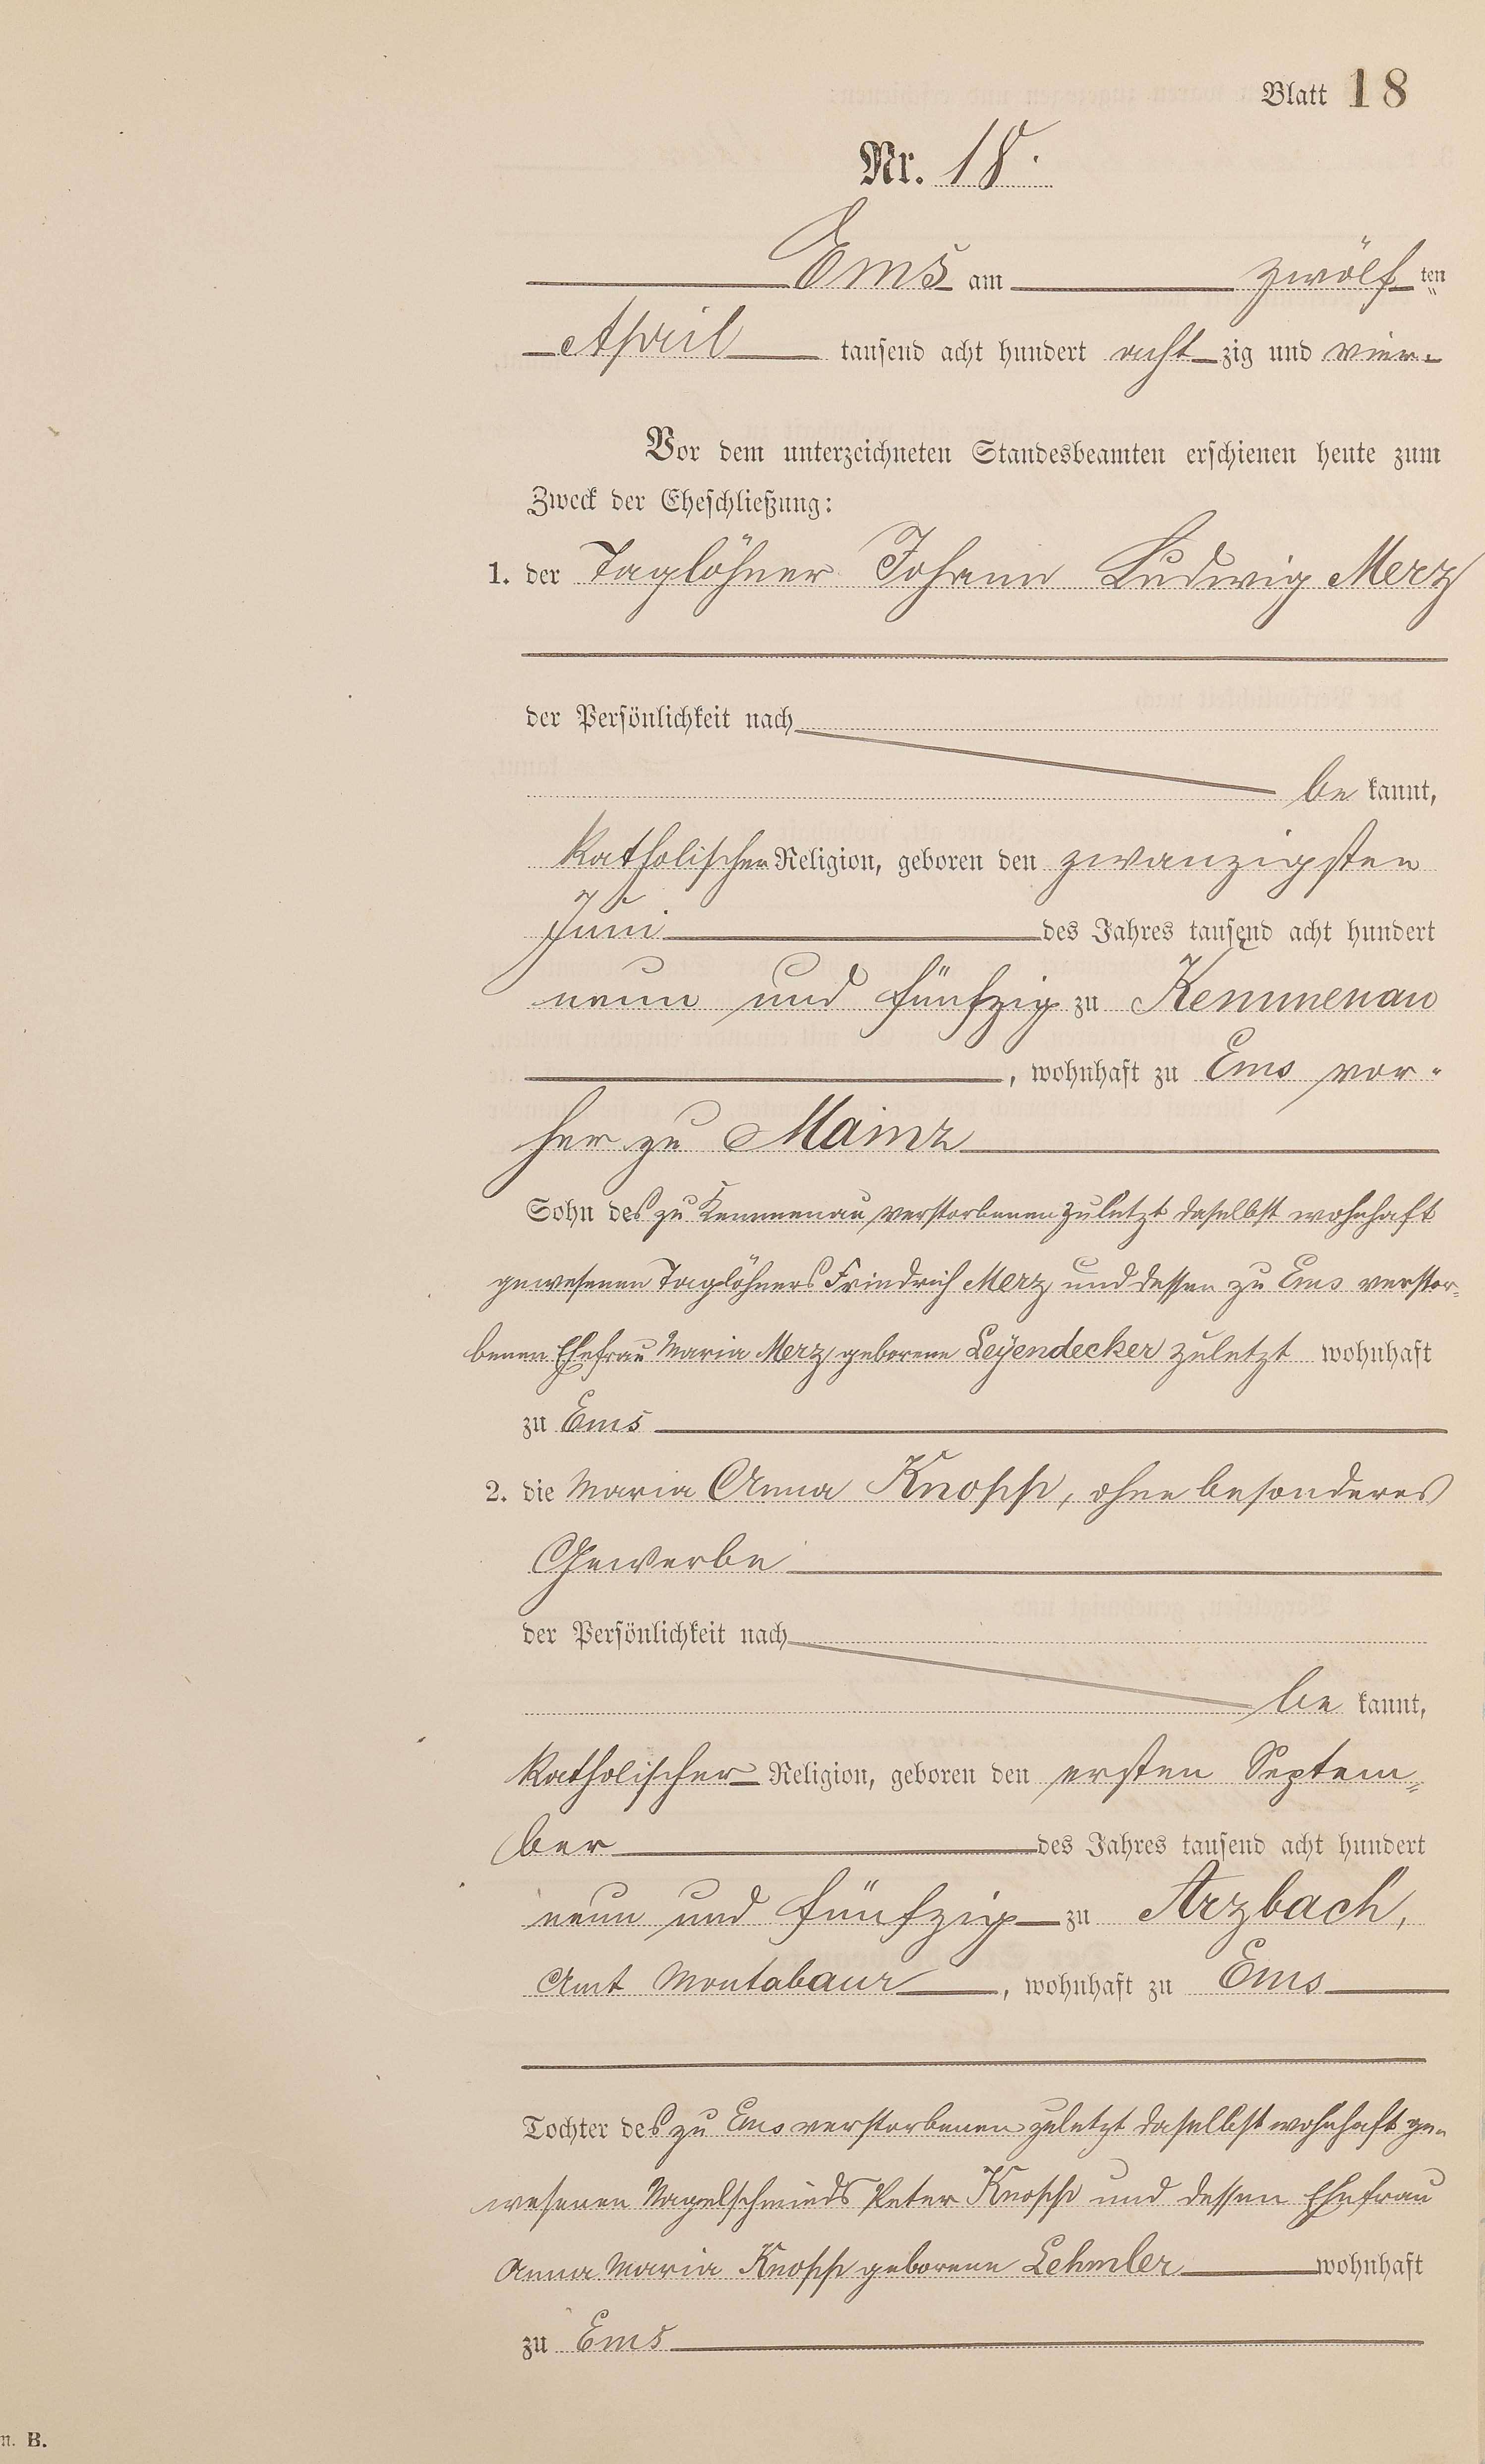 Blatt 18
Nr. 18.
Ems am zwölf ten
April tausend acht hundert acht zig und vier.
Vor dem unterzeichneten Standesbeamten erschienen heute zum
Zweck der Eheschließung:
1. der Taglöhner Johann Ludwig Merz
der Persönlichkeit nach
be kannt,
katholischer Religion, geboren den zwanzigsten
Juni des Jahres tausend acht hundert
neun und fünfzig zu Kemmenau
, wohnhaft zu Ems vor-
her zu Mainz
Sohn des zu Kemmenau verstorbenen zuletzt daselbst wohnhaft
gewesenen Taglöhners Friedrich Merz und dessen zu Ems verstor-
benen Ehefrau Maria Merz geborene Leÿendecker zuletzt wohnhaft
zu Ems
2. die Maria Anna Knopp, ohne besonderes
Gewerbe
der Persönlichkeit nach
be kannt,
katholischer Religion, geboren den ersten Septem-
ber des Jahres tausend acht hundert
neun und fünfzig zu Arzbach,
Amt Montabaur, wohnhaft zu Ems
Tochter des zu Ems verstorbenen zuletzt daselbst wohnhaft ge-
wesenen Nagelschmieds Peter Knopp und dessen Ehefrau
Anna Maria Knopp geborene Lehmler wohnhaft
zu Ems
n. B.